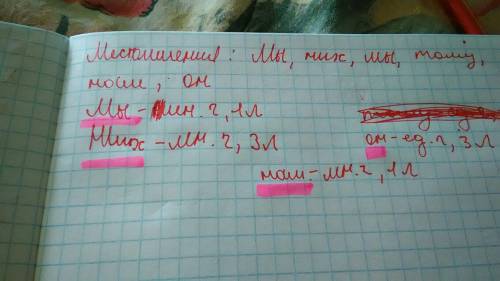 Местоимения: Мы, них, мы, тому,
нам, он
Мы - мн. ч, 1л
Них - мн. ч, 3л
он - ед. ч, 3л
нам - мн. ч, 1л